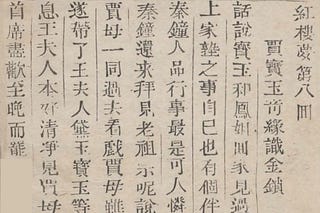 紅樓夢第八回
賈寶玉奇緣識金鎖
話說寶玉和鳳姐回家見過
上家塾之事自巳也有個伴
秦鐘人品行事最是可人憐
秦鐘還來拜見老祖宗呢說
賈母一同過去看戲賈母雖
遂帶了王夫人黛玉寶玉等
息王夫人本好清淨見賈母
首席盡歡至晚而罷